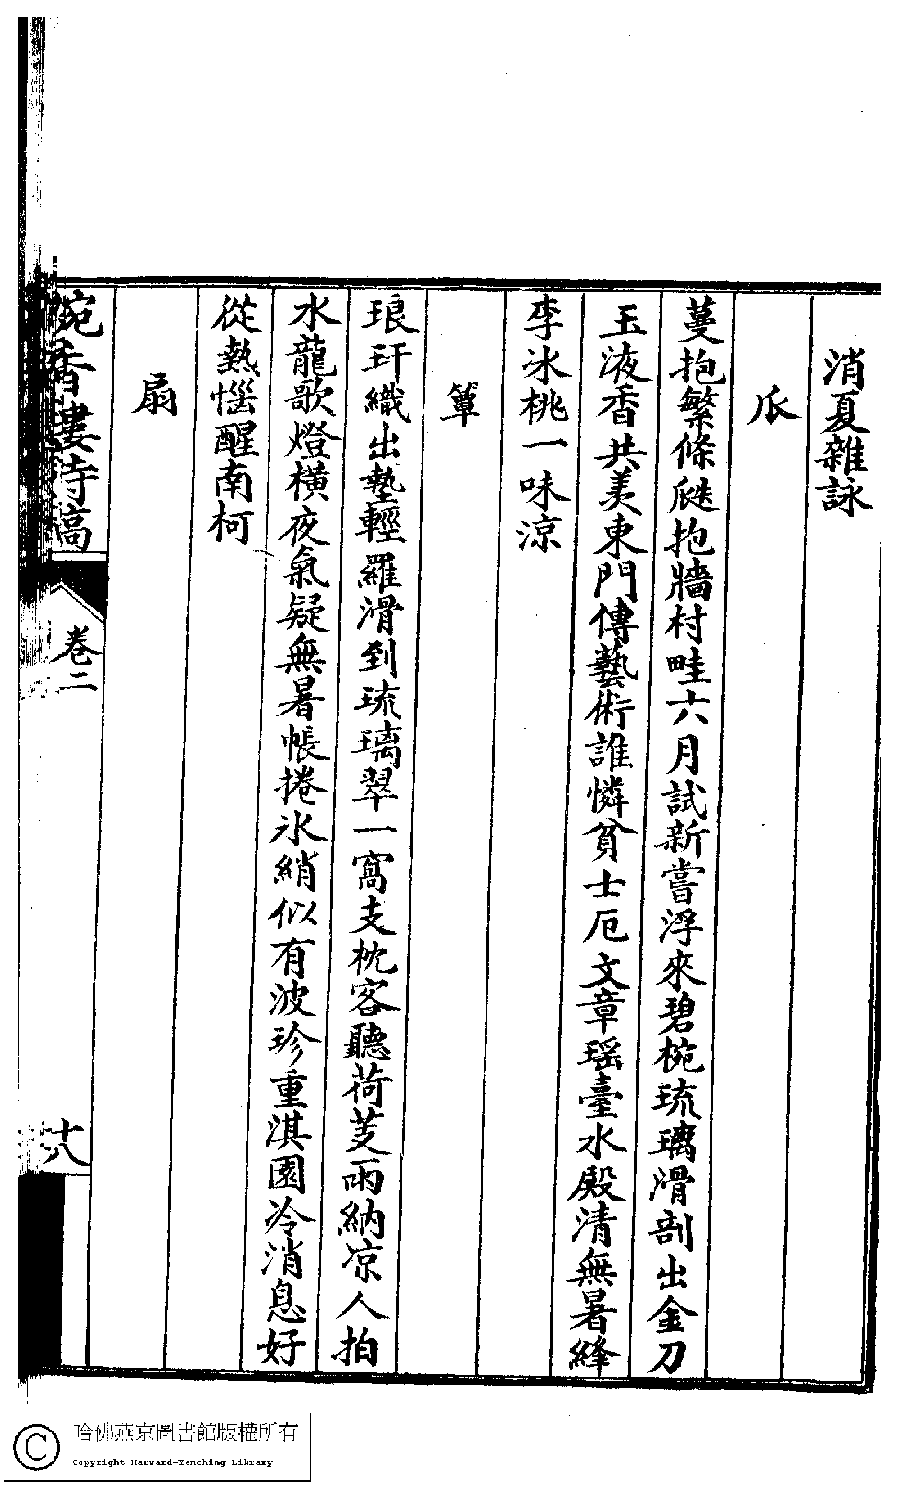 消夏雜詠
瓜
蔓抱繁條瓞抱牆村畦六月試新嘗浮來碧椀琉璃滑剖出金刀
玉液香共羡東門傳藝術誰憐貧士厄文章瑤臺水殿清無暑絳
李冰桃一味涼
簟
琅玕織出墊輕羅滑到琉璃翠一窩支枕客聽荷芰雨納凉人拍
水龍歌燈橫夜氣疑無暑帳捲氷綃似有波珍重淇園冷消息好
從熱惱醒南柯
扇
婉香樓詩稿
卷二
十八
哈佛燕京圖書館版權所有
Copyright Harvard-Yenching Library